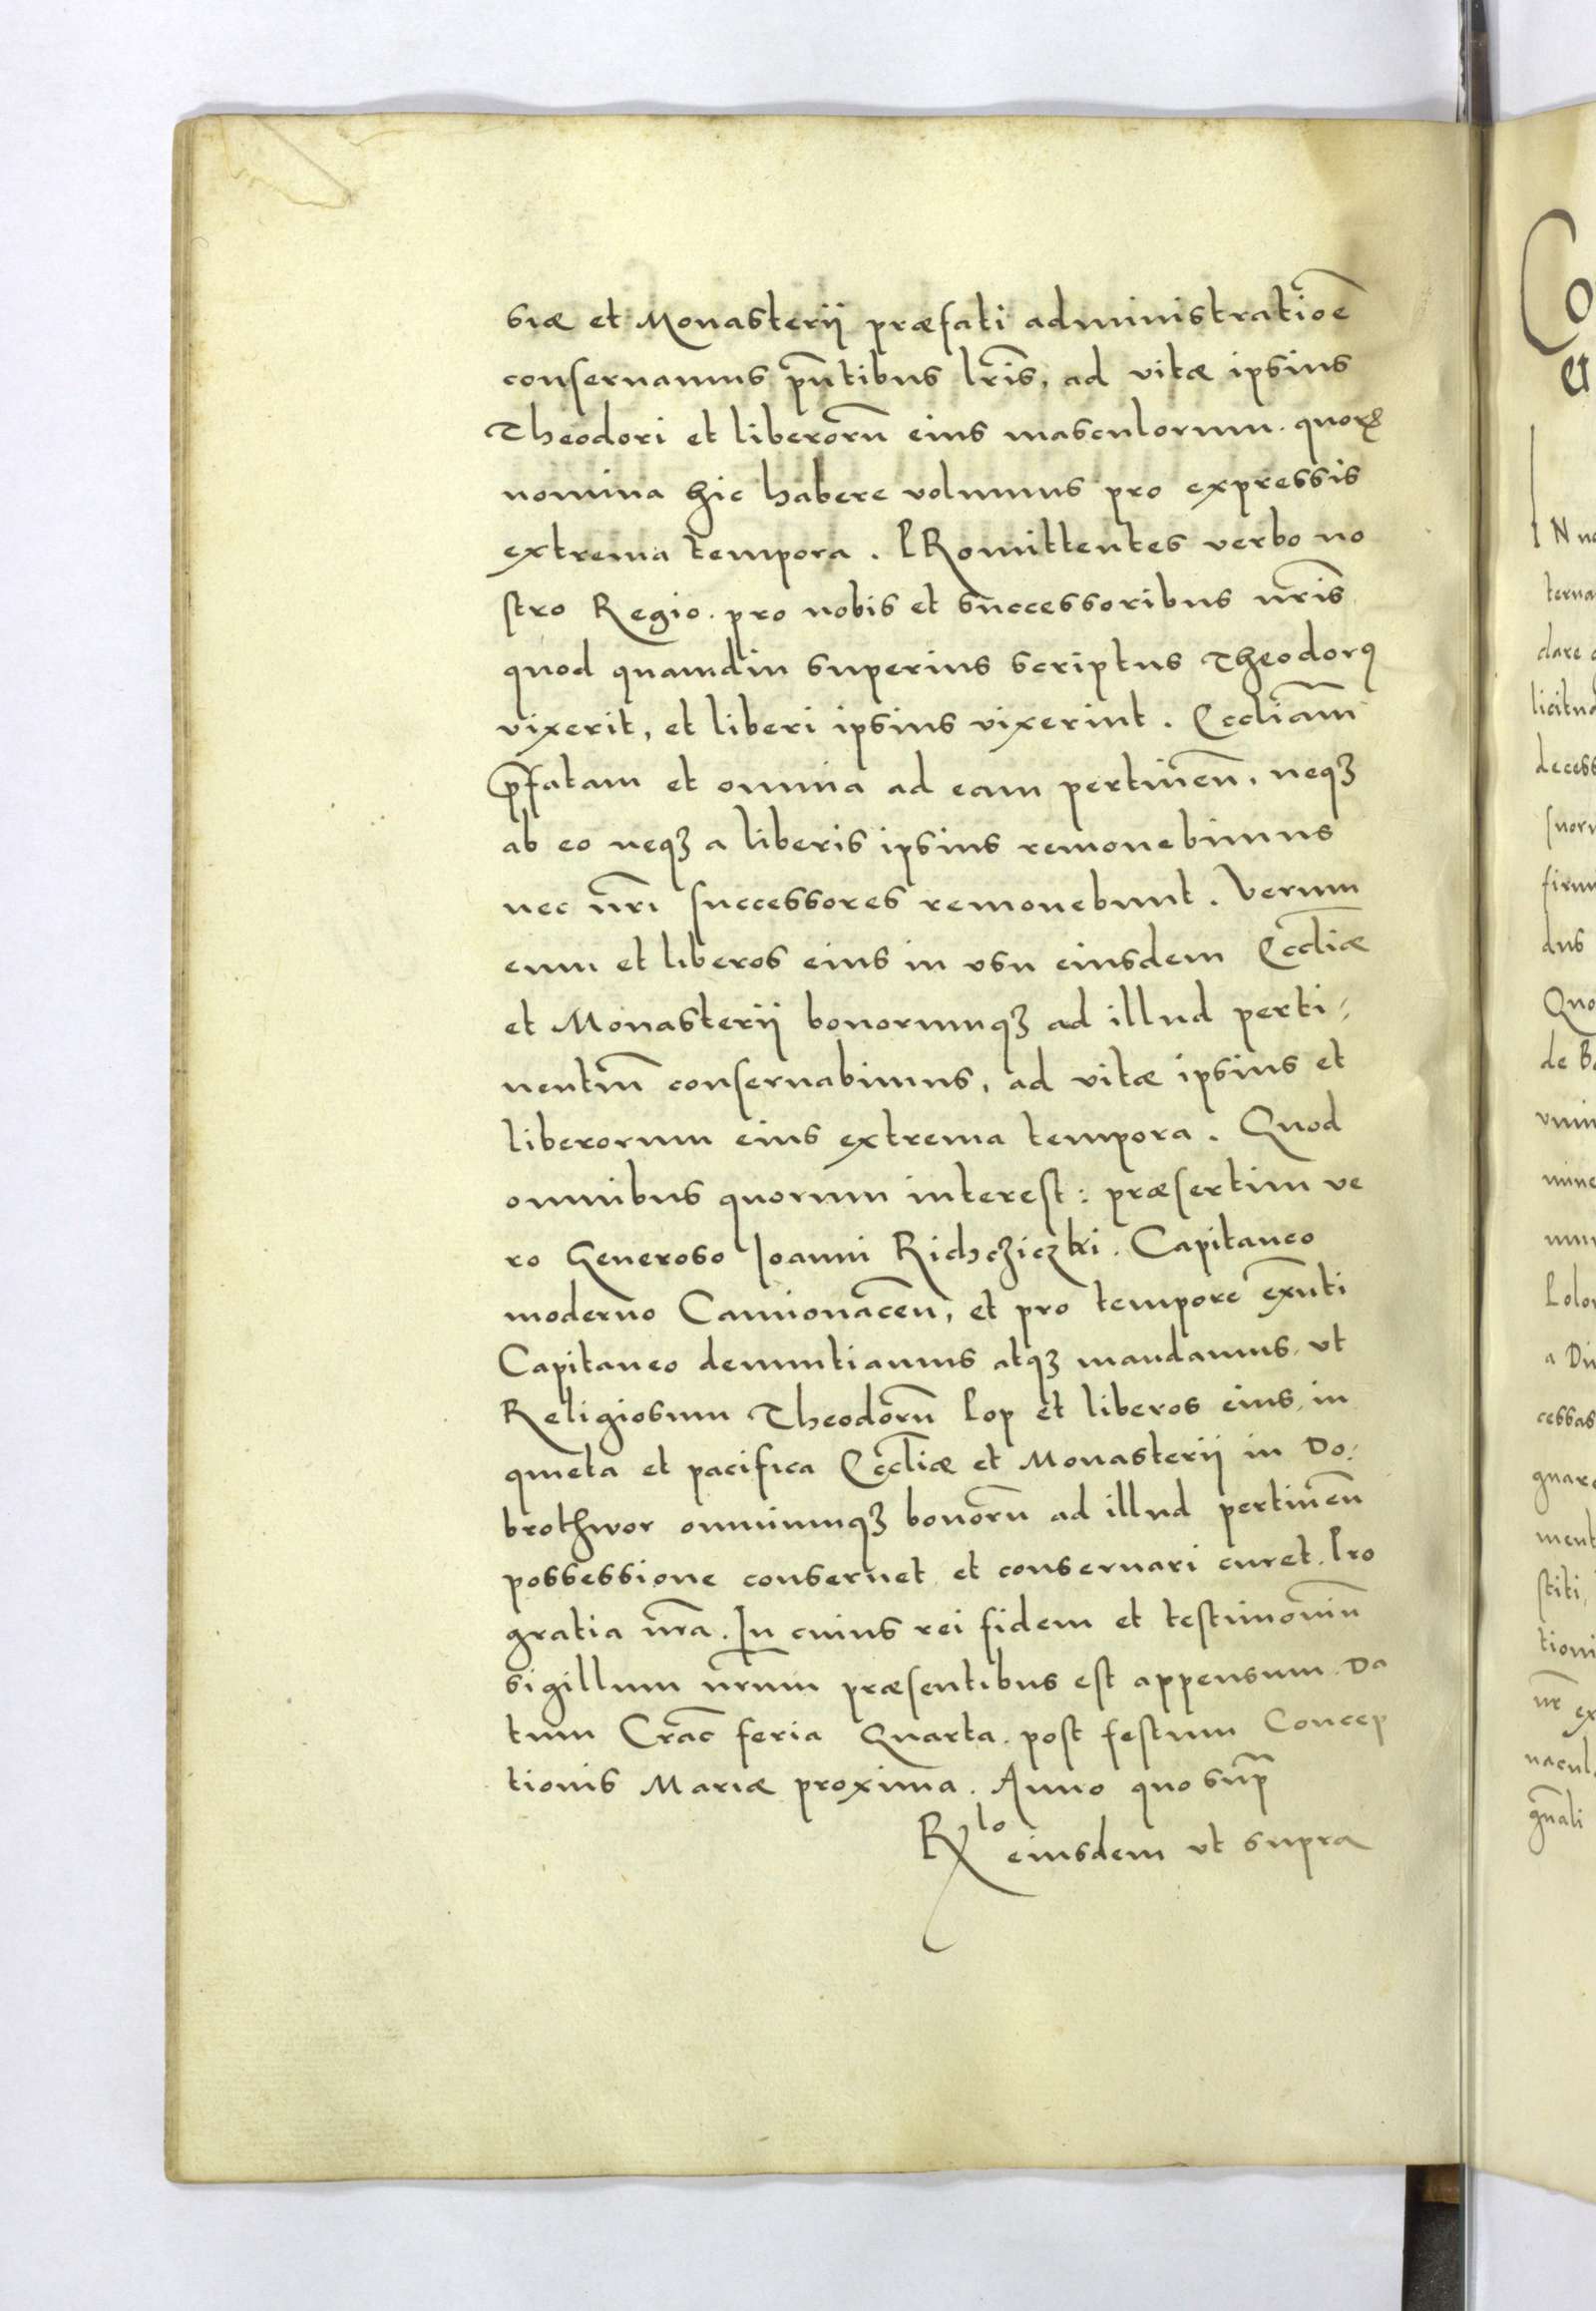 siæ et Monasterij præfati administratioē
conseruamus p̄ntibus lr̄is, ad vitæ ipsius
Theodori et liberorū eius masculorum. quorꝝ
nomina hic habere volumus pro expressis
extrema tempora. PRomittentes verbo no
stro Regio. pro nobis et successoribus nr̄is
quod quamdiu superius scriptus Theodorꝰ
vixerit, et liberi ipsius vixerint. Eccliam̄
p̄fatam et omnia ad eam pertineñ. neqꝫ
ab eo neqꝫ a liberis ipsius remouebimus
nec nr̄i successores remouebunt. Verum
eum et liberos eius in vsu eiusdem Eccl̄iæ
et Monasterij bonorumqꝫ ad illud perti-
nentiū conseruabimus, ad vitæ ipsius et
liberorum eius extrema tempora. Quod
omnibus quorum interest: præsertim ve
ro Generoso Joanni Richcziczki. Capitaneo
moderno Camionaceñ, et pro tempore exn̄ti
Capitaneo denuntiamus atqꝫ mandamus, vt
Religiosum Theodorū Pop et liberos eius, in
quieta et pacifica Eccl̄iæ et Monasterij in Do-
brothwor omniumqꝫ bonorū ad illud pertineñ
possessione conseruet et conseruari curet. Pro
gratia nr̄a. In cuius rei fidem et testimoniū
sigillum nr̄um præsentibus est appensum. Da
tum Crac̄ feria Quarta. post festum Concep
tionis Mariæ proxima. Anno quo sup̄
Rlo eiusdem vt supra
Co
et
IN no
terna
dare
licitud
decess
firm
dus
Quo
de Ba
mine
Polon
a Di
cessas
ment
stiti,
tioni
nr̄ ex
nacul
gn̄ali